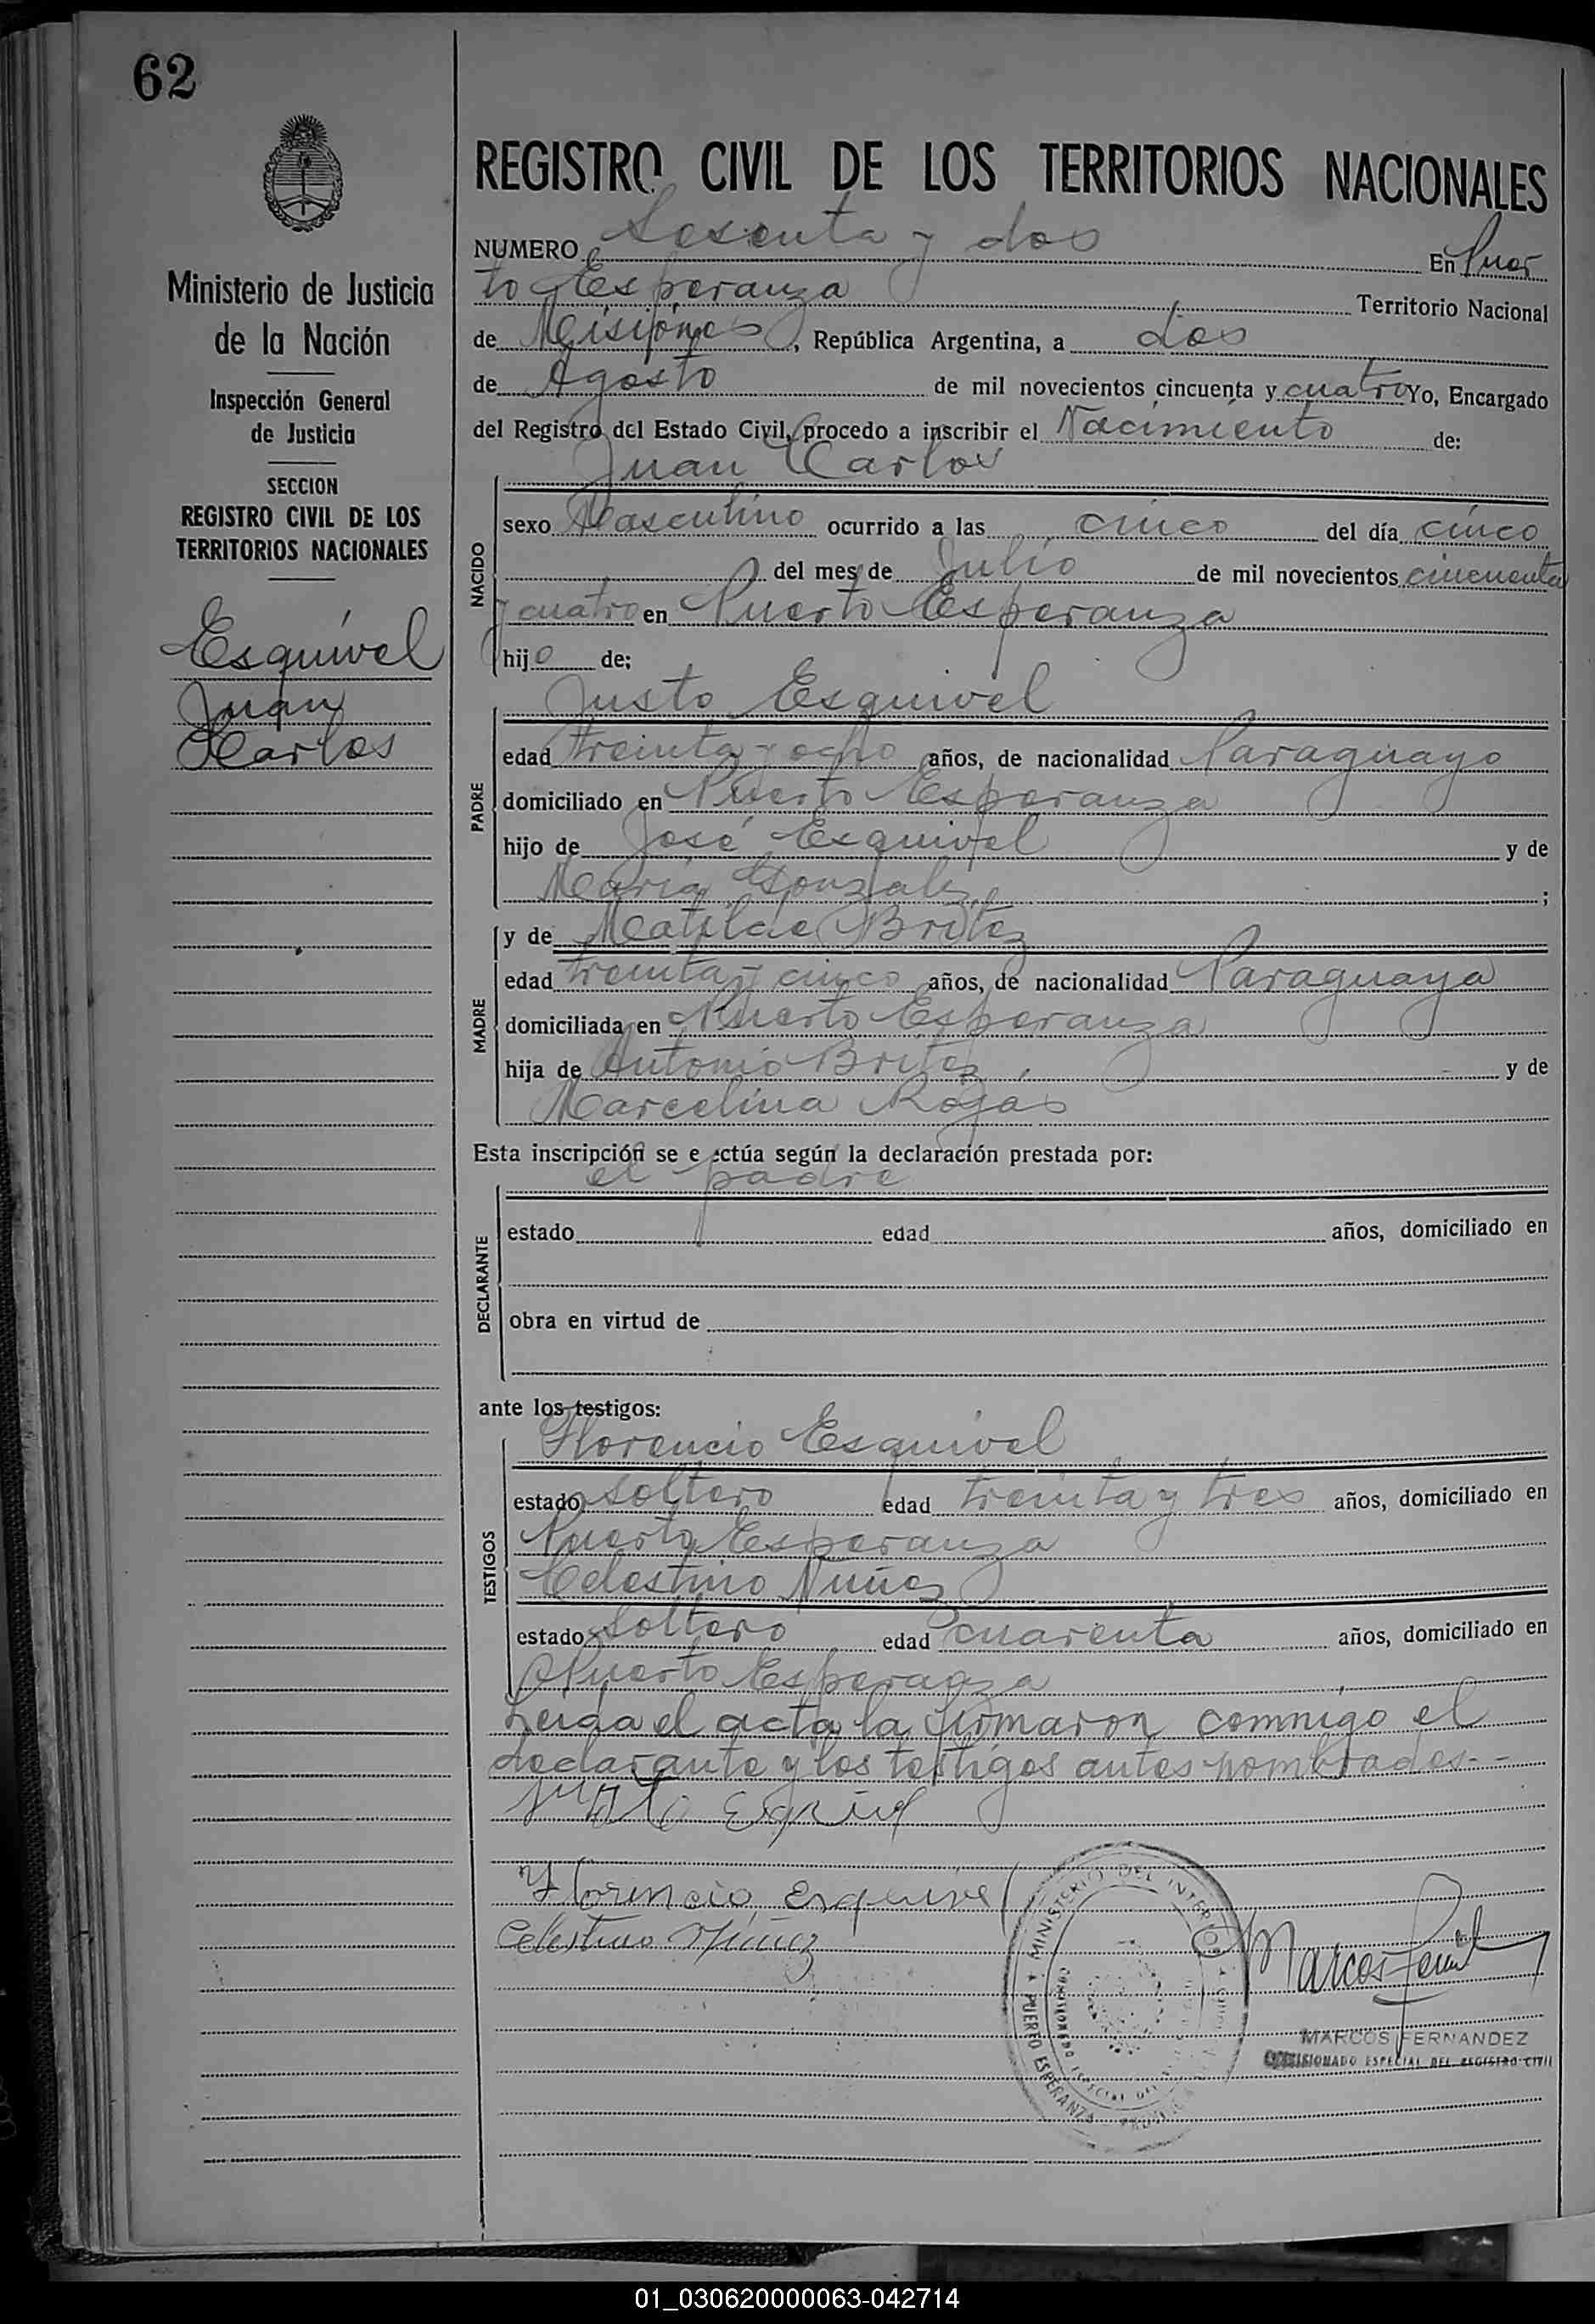 62
Ministerio de Justicia
de la Nación
Inspección General
de Justicia
SECCION
REGISTRO CIVIL DE LOS
TERRITORIOS NACIONALES
Esquivel
Juan
Carlos
REGISTRO CIVIL DE LOS TERRITORIOS NACIONALES
NUMERO Sesenta y dos En Puer
to Esperanza Territorio Nacional
de Misiones, República Argentina, a dos
de Agosto de mil novecientos cincuenta y cuatro Yo, Encargado
del Registro del Estado Civil, procedo a inscribir el Nacimiento de:
Juan Carlos
NACIDO
sexo Masculino ocurrido a las cinco del día cinco
del mes de Julio de mil novecientos cincuenta
y cuatro en Puerto Esperanza
hijo de:
Justo Esquivel
PADRE
edad treinta y ocho años, de nacionalidad Paraguayo
domiciliado en Puerto Esperanza
hijo de José Esquivel y de
María Gonzalez ;
y de Matilde Britez
MADRE
edad treinta y cinco años, de nacionalidad Paraguaya
domiciliada en Puerto Esperanza
hija de Antonio Britez y de
Marcelina Rojas
Esta inscripción se e ectúa según la declaración prestada por:
el padre
DECLARANTE
estado edad años, domiciliado en
obra en virtud de
ante los testigos:
Florencio Esquivel
TESTIGOS
estado soltero edad treinta y tres años, domiciliado en
Puerto Esperanza
Celestino Nuñez
estado soltero edad cuarenta años, domiciliado en
Puerto Esperanza
Leida el acta la firmaron comnigo el
declarante y los testigos antes nombrados.--
Justo Esquivel
Florencio Esquivel
Celestino Núñez
MINISTERIO DEL INTERIOR
PUERTO ESPERANZA
Marcos Fernández
MARCOS FERNANDEZ
COMISIONADO ESPECIAL DEL REGISTRO CIVIL
01_030620000063-042714